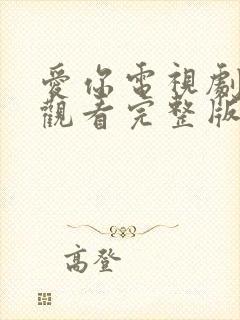 愛你電視劇
觀看完整版
高登